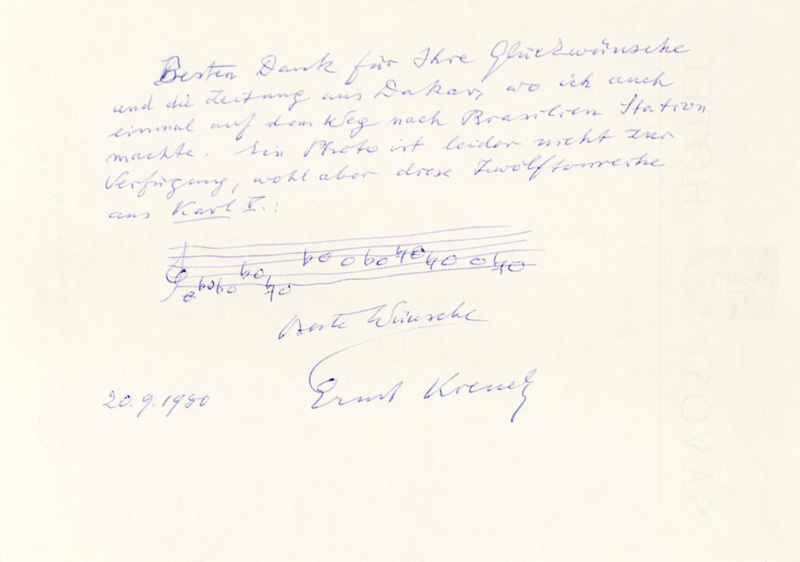 Besten Dank für Ihre Glückwünsche
und die Zeitung aus Dakar, wo ich auch
einmal auf dem Weg nach Brasilien Station
machte. Ein Photo ist leider nicht zur
Verfügung, wohl aber diese Zwölftonreihe
aus Karl V.:
Beste Wünsche
Ernst Krenek
20.9.1980